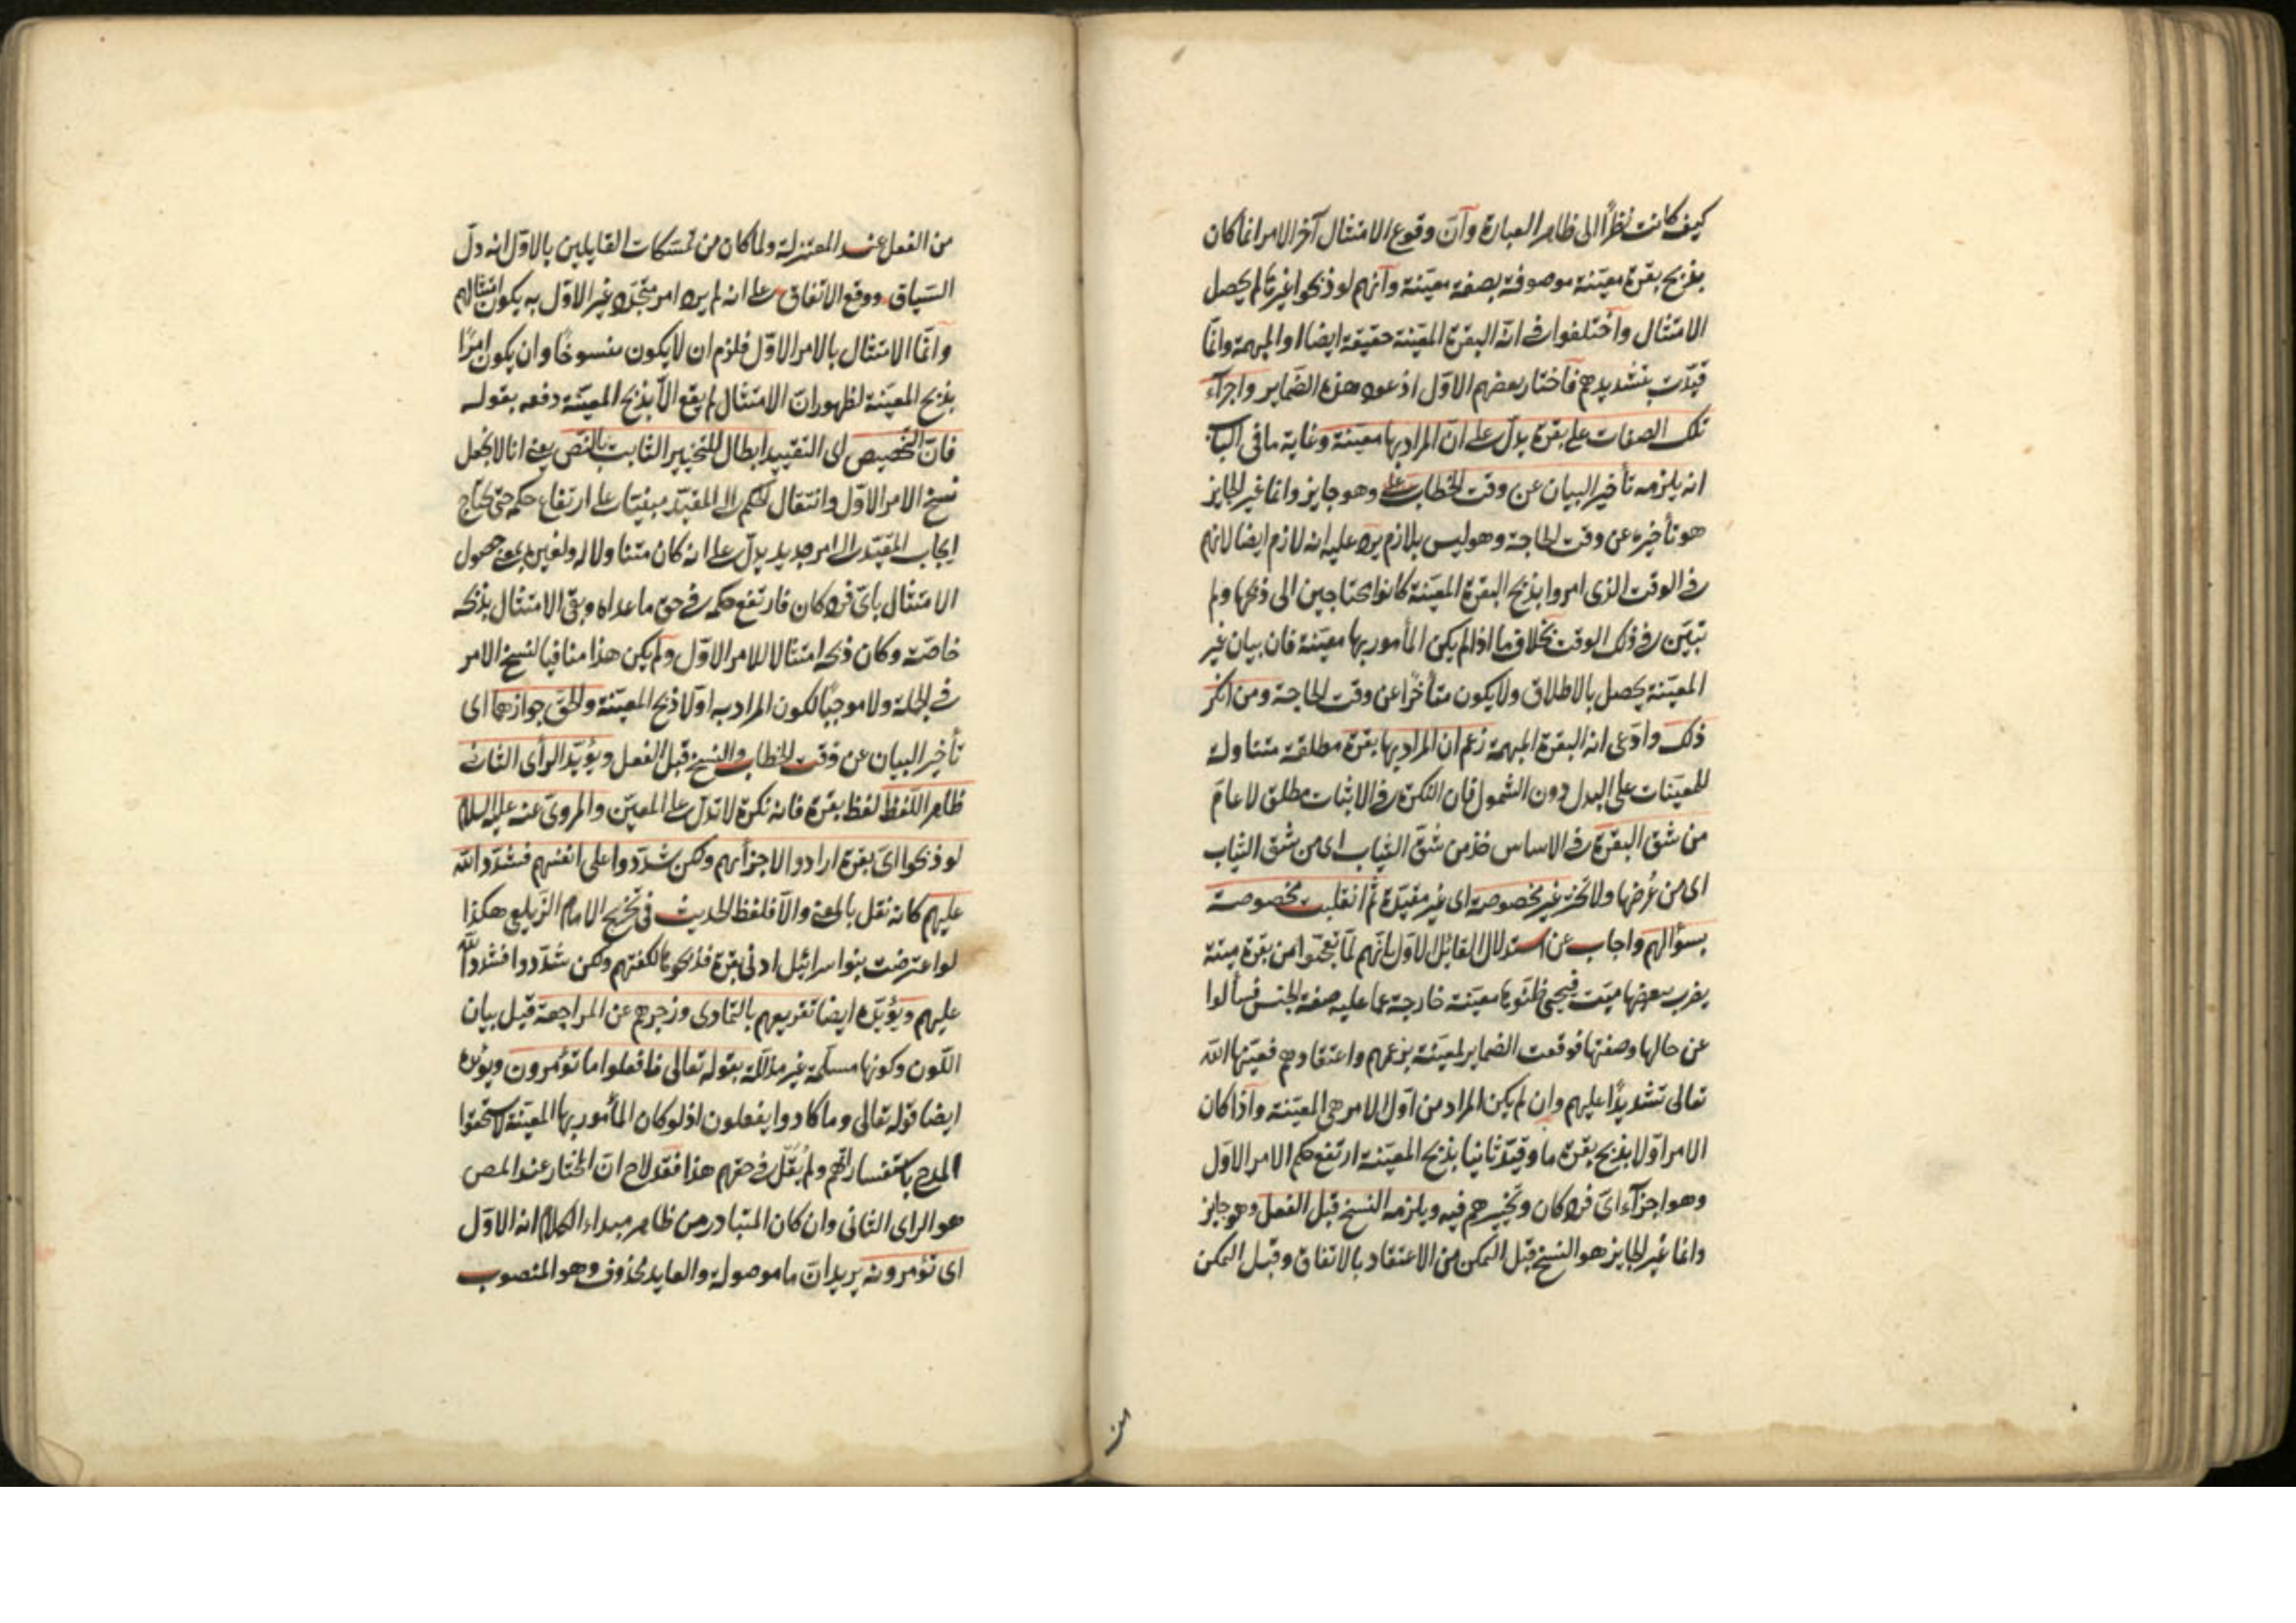 كيف كانت نظرًا الى ظاهر العبارة وآن وقوع الامتثال آخر الامر انما كان
بذبح بقرة معيّنة موصوفة بصفة معيّنة وآنهم لو ذبحوا غيرها لم يحصل
الامتثال واختلفوا في انه البقرة المعيّنة حقيقة ايضا او المبهمة وانما
قيّدت بتشديدهم فآختار بعضهم الاول اذ عود هذه الضماير واجرآء
تلك الصفات على بقرة يدلّ على ان المراد بها معيّنة وغاية ما في الباب
انه يلزمه تأخير البيان عن وقت الخطاب وهو جايز وانما غير الجايز
هو تأخيره عن وقت الحاجة وهو ليس بلازم يرد عليه انه لازم ايضا لانهم
في الوقت الذى امروا بذبح البقرة المعيّنة كانوا محتاجين الى ذبحها ولم
تبيّن في ذلك الوقت بخلاف ما اذا لم يكن المأمور بها معيّنة فان بيان غير
المعيّنة يحصل بالاطلاق ولا يكون متأخرًا عن وقت الحاجة ومن انكر
ذلك وادّعى انه البقرة المبهمة زعم ان المراد بها بقرة مطلقة متناولة
للمعيّنات على البدل دون الشمول فان النكرة في الاثبات مطلق لا عامّ
من شق البقرة في الاساس خذ من شُقّ الثياب اى من شق الثياب
اى من عُرضها ولا تختر غير مخصوصة اى غير مقيّدة ثم انقلبت مخصوصة
بسؤالهم واجاب عن استدلال القائل الاول انهم لمّا تعجّبوا من بقرة ميتة
يضرب ببعضها ميّت فيحيى ظنّوها معيّنة خارجة عما عليه صفة الجنس فسألوا
عن حالها وصفتها فوقعت الضماير لمعيّنة بزعمهم واعتقادهم فعيّنها الله
تعالى تشديدًا عليهم وان لم يكن المراد من اول الامر هى المعيّنة وآذا كان
الامر اوّلا بذبح بقرة ما وقيّد ثانيا بذبح المعيّنة ارتفع حكم الامر الاول
وهو اجزآء اىّ فرد كان وتخييرهم فيه ويلزمه النسخ قبل الفعل وهو جايز
وانما غير الجايز هو النسخ قبل التمكن من الاعتقاد بالاتفاق وقبل التمكن
من
من الفعل عند المعتزلة ولما كان من تمسّكات القايلين بالاول انه دلّ
السّياق ووقع الاتفاق على انه لم يرد امر متجدّد غير الاوّل به يكون امتثالهم
وانمّا الامتثال بالامر الاوّل فلزم ان لا يكون منسوخًا وان يكون امرًا
بذبح المعيّنة لظهور ان الامتثال لم يقع الّا بذبح المعيّنة دفعه بقوله
فانّ التخصيص اى التقييد ابطال للتخيير الثابت بالنص يعنى انا لا نجعل
نسخ الامر الاول وانتقال الحكم الى المقيّد مبنيّا على ارتفاع حكمه حتى يحتاج
ايجاب المقيّد الى امر جديد بل على انه كان متناولا له ولغيره بمعنى حصول
الامتثال باىّ فرد كان فارتفع حكمه في حق ما عداه وبقى الامتثال بذبحه
خاصّة وكان ذبحه امتثالا للامر الاول ولم يكن هذا منافيا لنسخ الامر
في الجملة ولا موجبًا لكون المراد به اولا ذبح المعيّنة والحق جوازهما اى
تأخير البيان عن وقت الخطاب والنسخ قبل الفعل ويؤيّد الرأى الثانى
ظاهر اللّفظ لفظ بقرة فانه نكرة لا تدلّ على المعيّن والمروىّ عنه عليه السلام
لو ذبحوا اىّ بقرة ارادوا لاجزأتهم ولكن شدّدوا على انفسهم فشدّد الله
عليهم كانه نقل بالمعنى والّا فلفظ الحديث في تخريج الامام الزيلعى هكذا
لو اعترضت بنوا سرائيل ادنى بقرة فذبحوها لكفتهم ولكن شدّدوا فشدّد الله
عليهم ويؤيّده ايضا تقريعهم بالتمادى وزجرهم عن المراجعة قبل بيان
اللّون وكونها مسلّمة غير مذلّلة بقوله تعالى فافعلوا ما تؤمرون ويؤيّده
ايضا قوله تعالى وما كادوا يفعلون اذ لو كان المأمور بها المعيّنة لاستحقوا
المدح باستفساراتهم ولم يُقل في حقهم هذا فقد لاح انّ المختار عند المص
هو الراى الثانى وان كان المتبادر من ظاهر مبداء الكلام انه الاوّل
اى تؤمرونه يريد ان ما موصولة والعايد محذوف وهو المنصوب